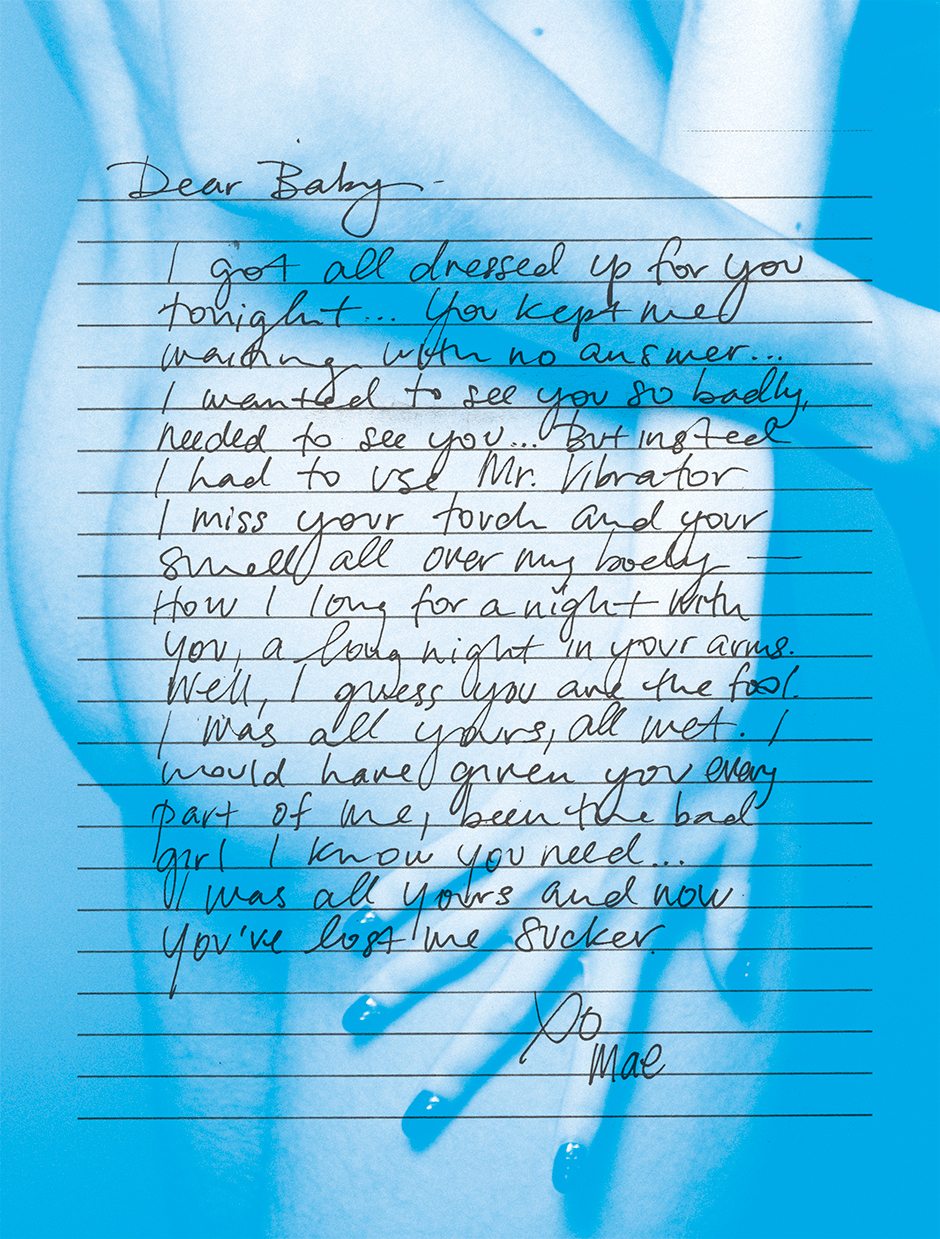 Dear Baby -
I got all dressed up for you
tonight... You kept me
waiting with no answer...
I wanted to see you so badly,
needed to see you... But insted
I had to use Mr. Vibrator
I miss your touch and your
smell all over my body —
How I long for a night with
you, a long night in your arms.
Well, I guess you are the fool.
I was all yours, all wet. I
would have given you every
part of me, been the bad
girl I know you need...
I was all yours and now
you've lost me sucker.
XO
Mae